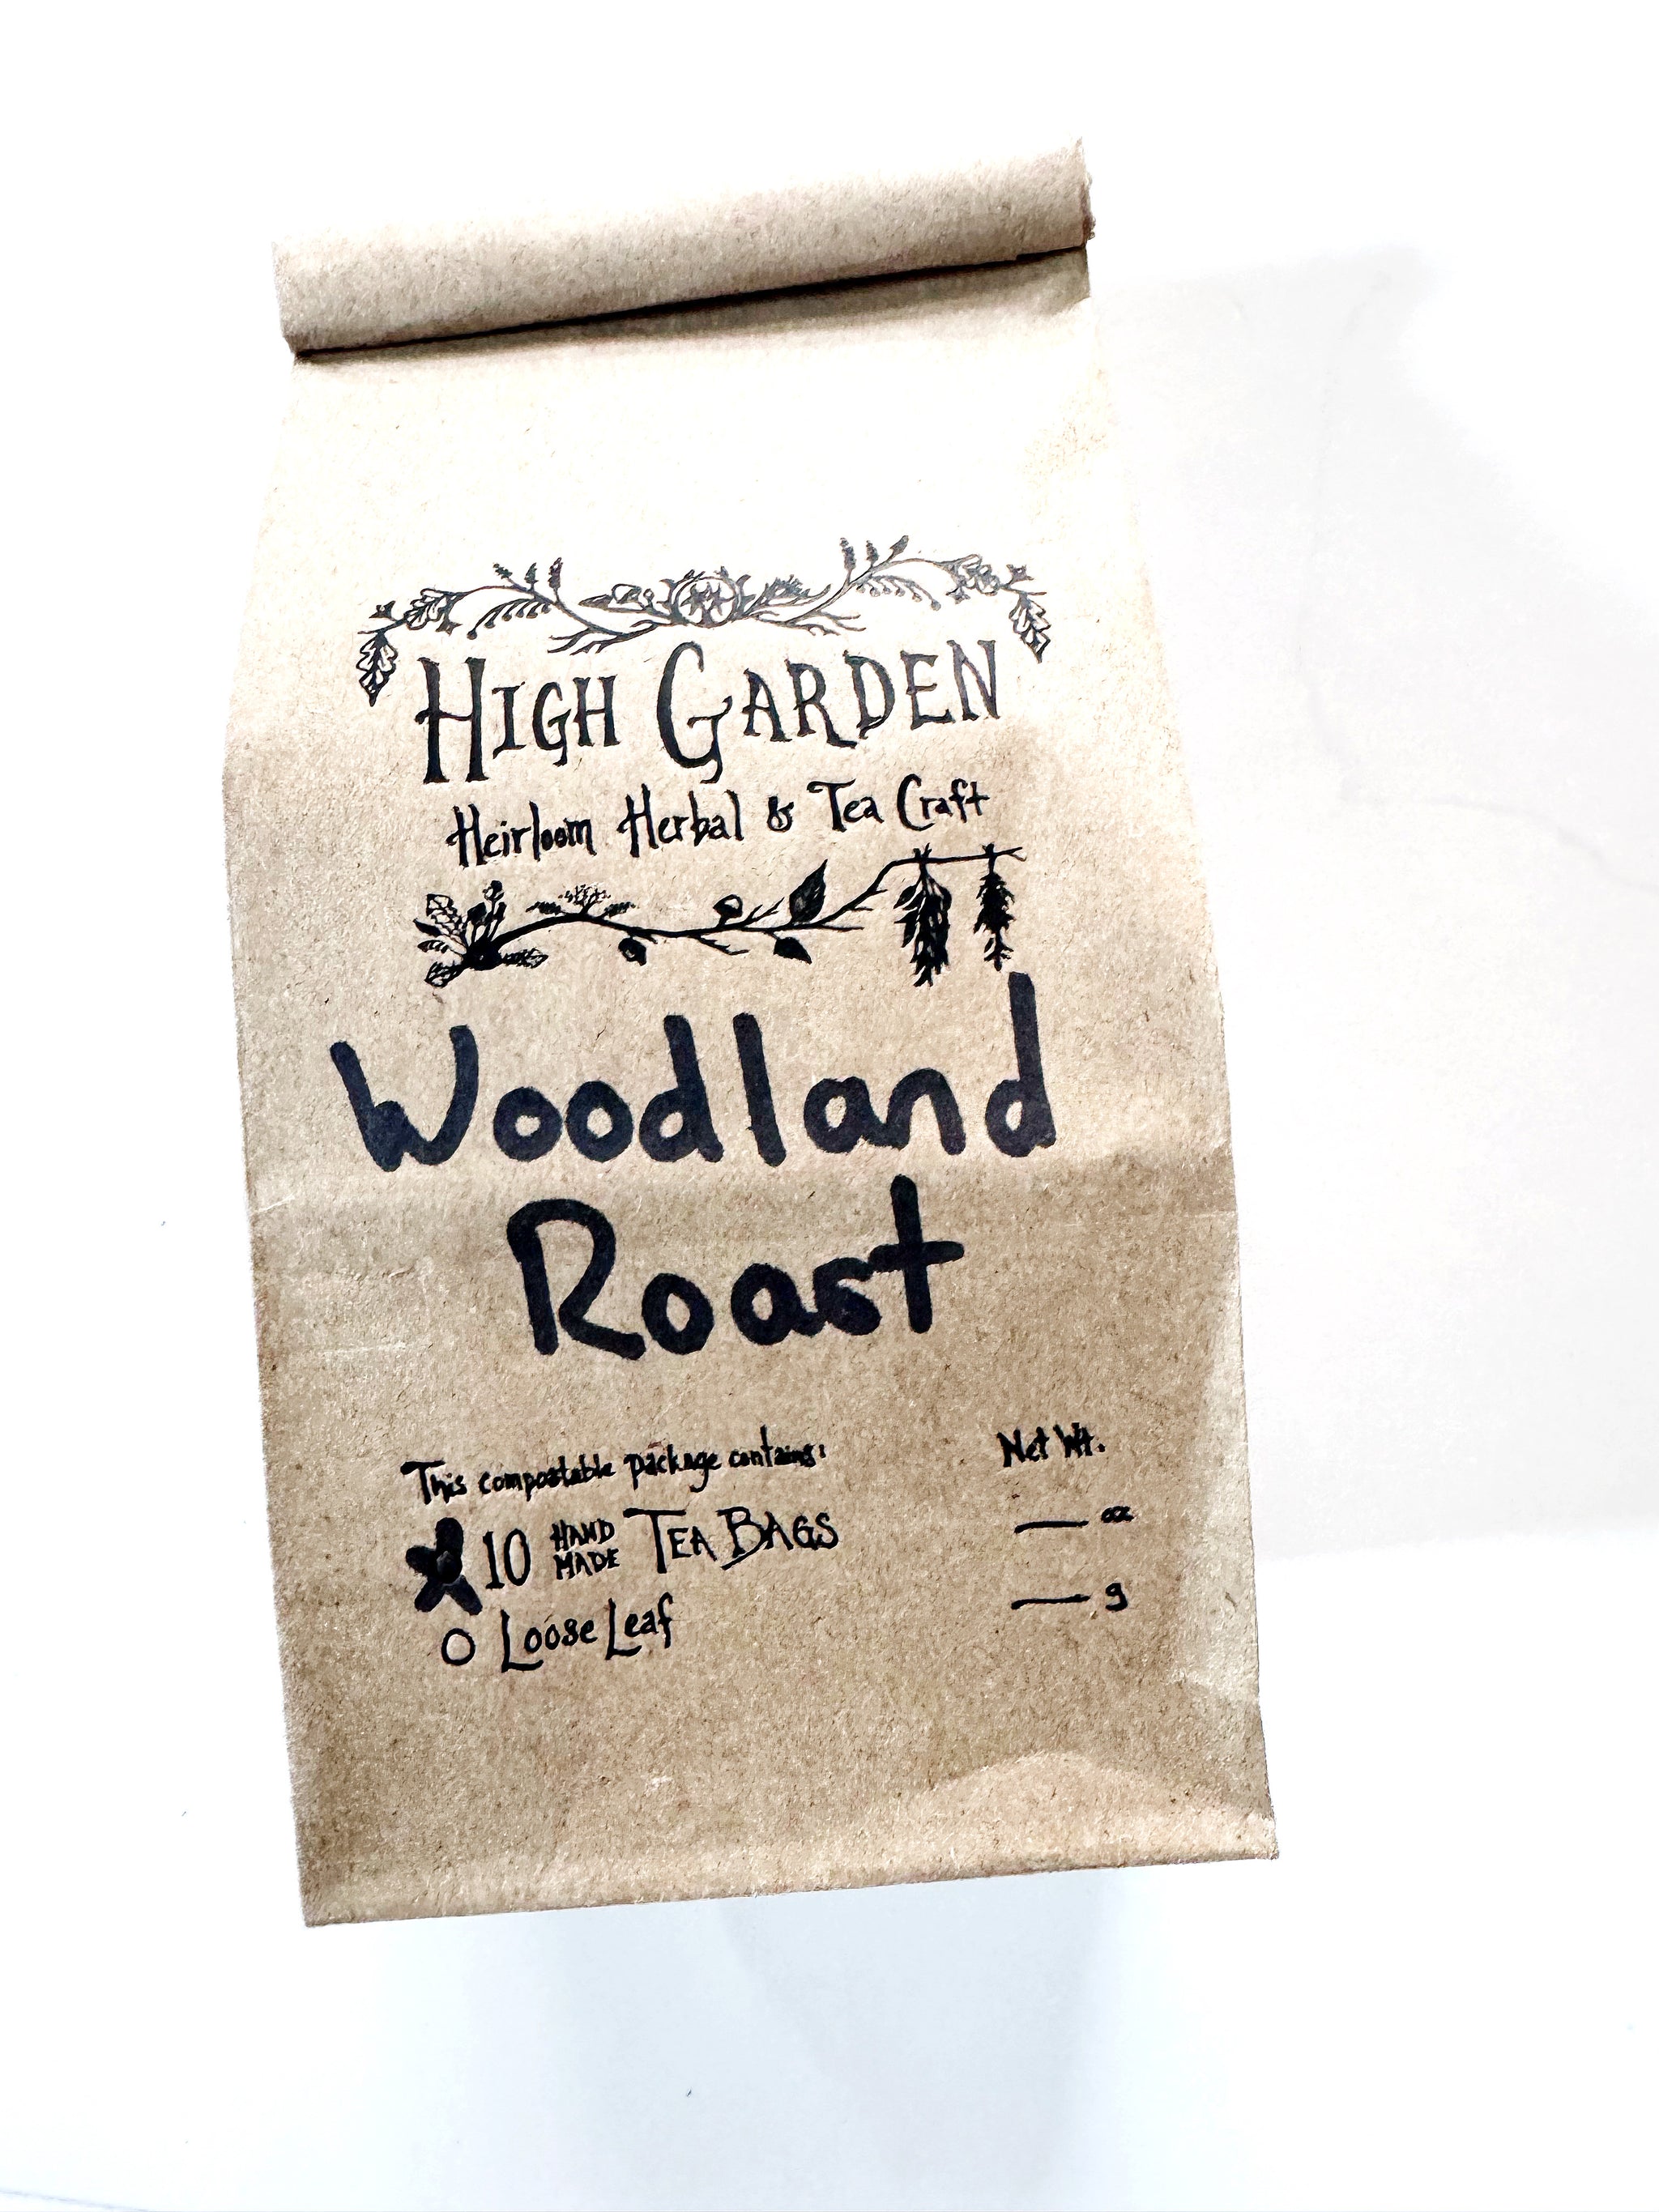 HIGH GARDEN
Heirloom Herbal & Tea Craft
Woodland
Roast
This compostable package contains:
10 HAND MADE TEA BAGS
Loose Leaf
Net Wt.
oz
g